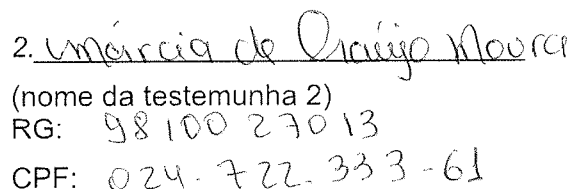 2. Márcia de Araújo Moura
(nome da testemunha 2)
RG: 98100 27013
CPF: 024.722.333-61